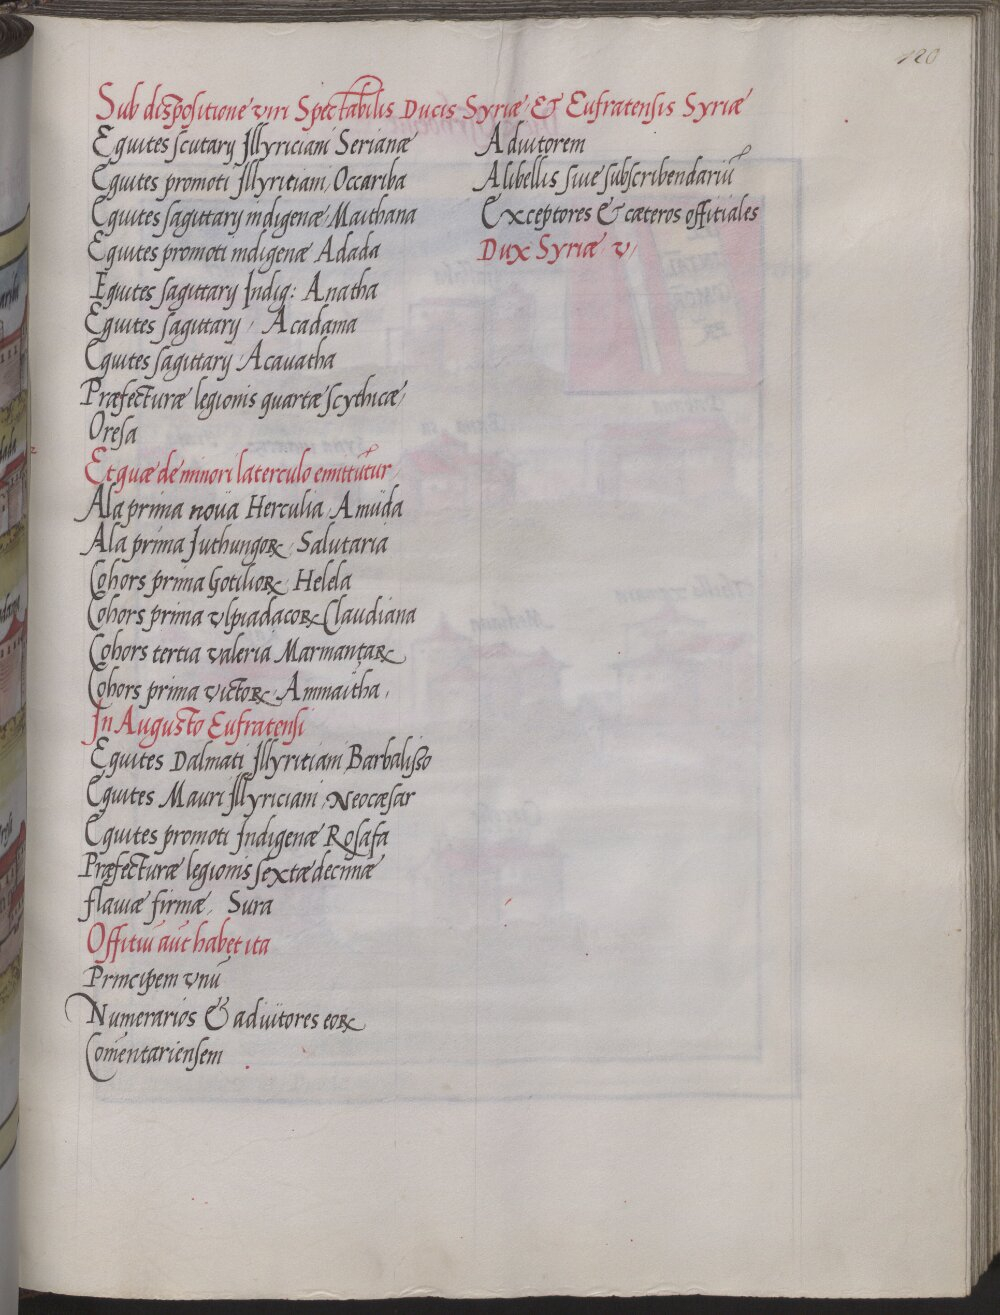 120
Sub dispositione viri Spectabilis Ducis Syriæ & Eufratensis Syriæ
Equites scutarij Illyriciani Serianæ
Equites promoti Illyritiani, Occariba
Equites sagittarij indigenæ, Maithana
Equites promoti indigenæ Adada
Equites sagitarij Indig: Anatha
Equites sagitarij, Acadama
Equites sagittarij, Acauatha
Præfecturæ legionis quartæ scythicæ,
Oresa
Et quæ de minori laterculo emittūtur,
Ala prima noüa Herculia, Amüda
Ala prima Juthungoꝝ, Salutaria
Cohors prima Gotthoꝝ, Helela
Cohors prima vlpiadacoꝝ, Claudiana
Cohors tertia valeria Marmantaꝝ
Cohors prima victoꝝ, Ammaütha,
In Augusto Eufratensi
Equites Dalmati Illyritiani Barbalisso
Equites Mauri Illyriciani, Neocæsar
Equites promoti Indigenæ Rosafa
Præfecturæ legionis sextædecimæ
flauiæ firmæ, Sura
Offitiū aūt habet ita
Principem vnū
Numerarios & adiuitores eoꝝ
Comentariensem
Adiutorem
Alibellis siue subscribendariū
Exceptores & cæteros offitiales
Dux Syriæ v,